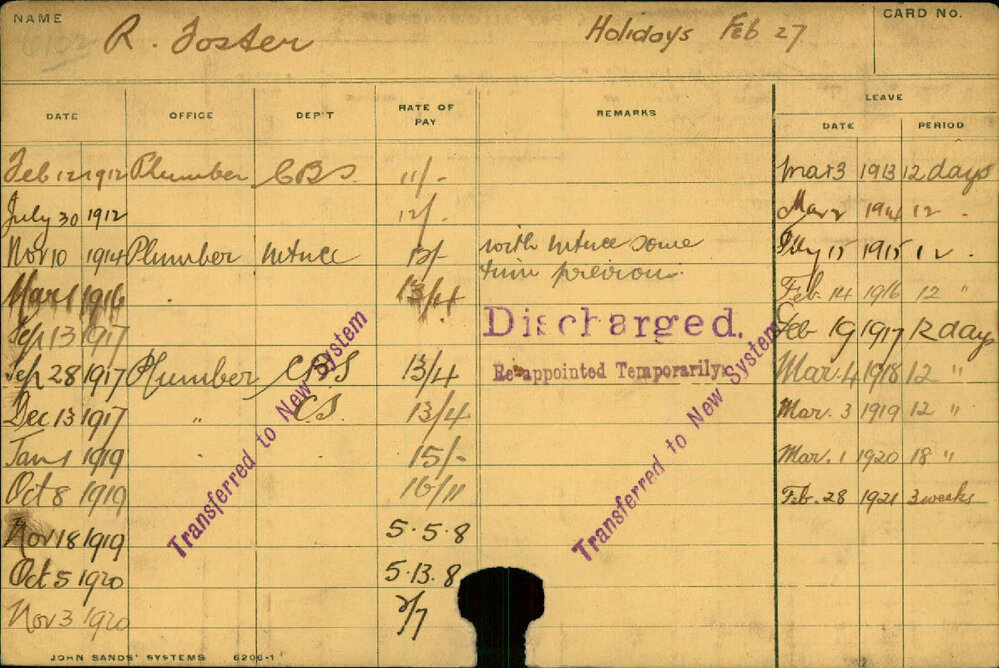 NAME R. Foster Holidays Feb 27 CARD No.
LEAVE
DATE OFFICE DEP'T RATE OF PAY REMARKS DATE PERIOD
Feb 12 1912 Plumber CBS. 11/- Mar 3 1913 12 days
July 30 1912 12/- Mar 2 1914 12 .
Nov 10 1914 Plumber 13/- with some 15 1915 12 .
time previous.
Mar 1 1916 13/4 Feb. 14 1916 12 "
Sep 13 1917 Discharged. Feb 19 1917 12 days
Sep 28 1917 Plumber CBS 13/4 Re-appointed Temporarily Mar. 4 1918 12 "
Dec 13 1917 " C.S. 13/4 Mar. 3 1919 12 "
Jan 1 1919 15/- Mar. 1 1920 18 "
Oct 8 1919 16/11 Feb. 28 1921 3 weeks
Nov 18 1919 5.5.8
Oct 5 1920 5.13.8
Nov 3 1920 2/7
Transferred to New System
Transferred to New System
JOHN SANDS' SYSTEMS 6206-1